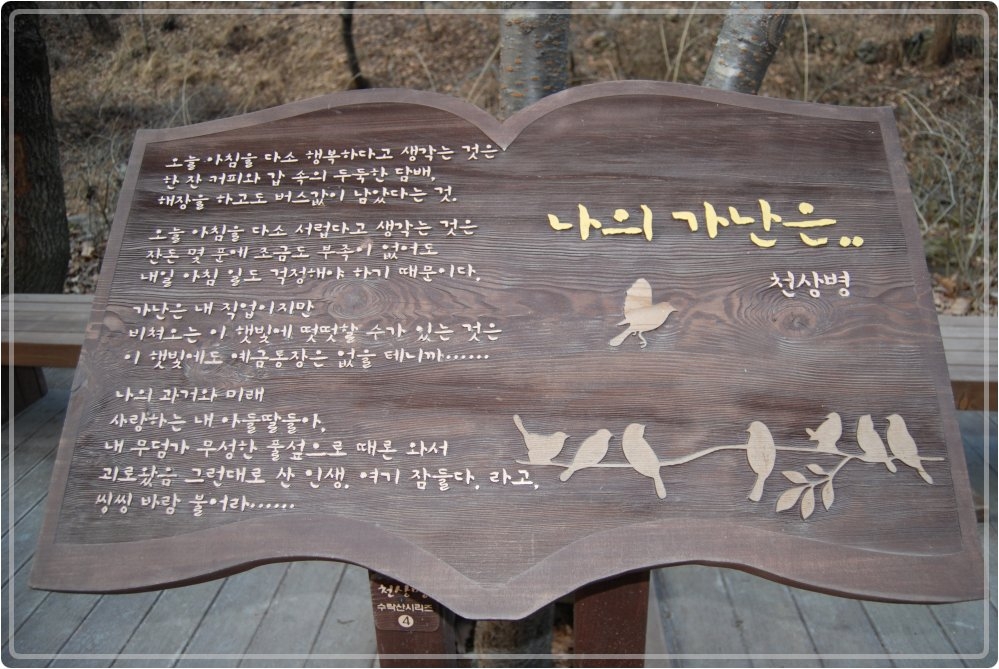 오늘 아침을 다소 행복하다고 생각는 것은
한 잔 커피와 갑 속의 두둑한 담배,
해장을 하고도 버스값이 남았다는 것.
오늘 아침을 다소 서럽다고 생각는 것은
잔돈 몇 푼에 조금도 부족이 없어도
내일 아침 일도 걱정해야 하기 때문이다.
가난은 내 직업이지만
비쳐오는 이 햇빛에 떳떳할 수가 있는 것은
이 햇빛에도 예금통장은 없을 테니까……
나의 과거와 미래
사랑하는 내 아들딸들아,
내 무덤가 무성한 풀섶으로 때론 와서
괴로왔음 그런대로 산 인생. 여기 잠들다. 라고,
씽씽 바람 불어라……
나의 가난은..
천상병
천상병
수락산시리즈
4